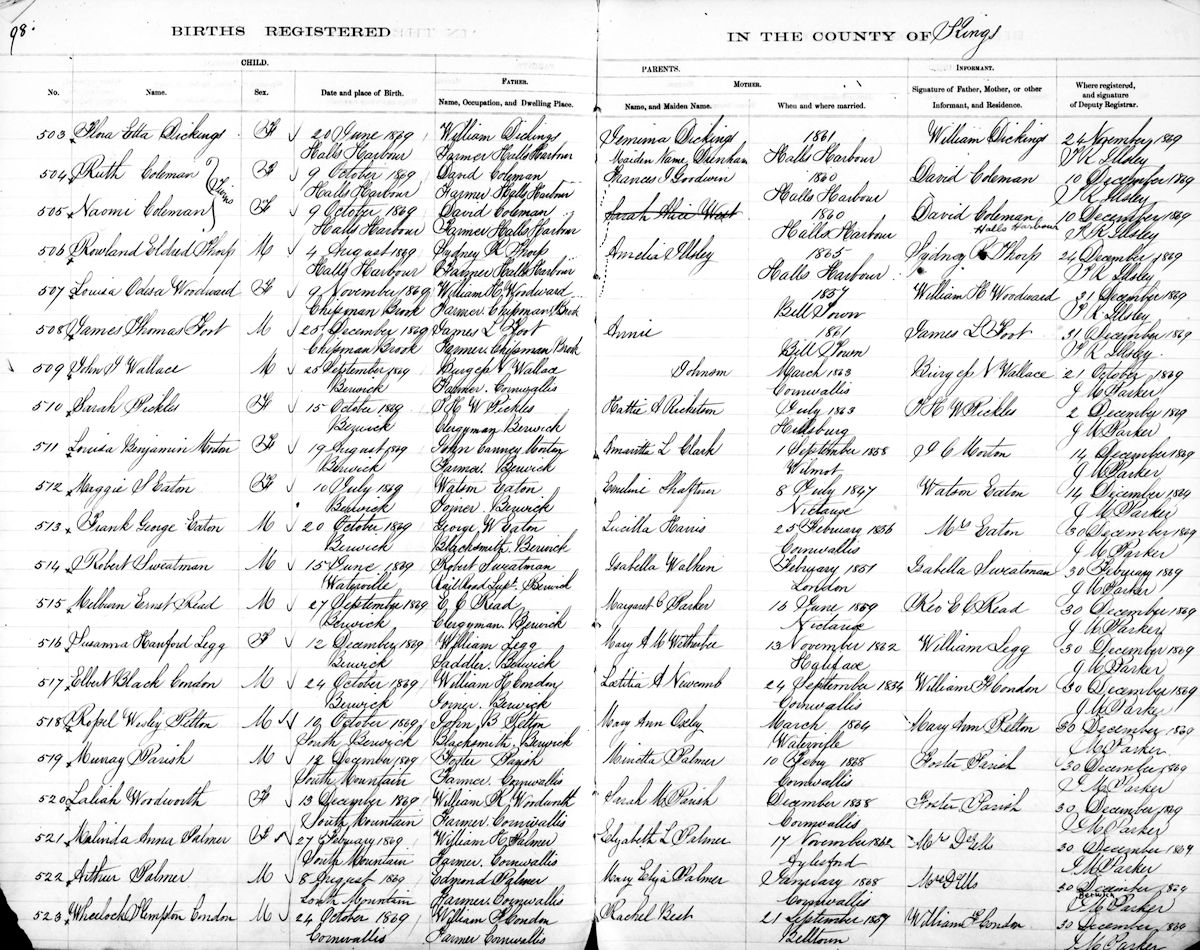 98.
BIRTHS REGISTERED IN THE COUNTY OF Kings
CHILD. PARENTS. INFORMANT.
FATHER. MOTHER.
No. Name. Sex. Date and place of Birth. Name, Occupation, and Dwelling Place. Name, and Maiden Name. When and where married. Signature of Father, Mother, or other Informant, and Residence. Where registered, and signature of Deputy Registrar.
503 Flora Etta Dickings F 20 June 1869 William Dickings Jemima Dickings 1861 William Dickings 24 November 1869
Halls Harbour Farmer Halls Harbour Maiden Name Halls Harbour
504 Ruth Coleman F 9 October 1869 David Coleman Frances Goodwin 1860 David Coleman 10 December 1869
Twins
Halls Harbour Farmer Halls Harbour Halls Harbour
505 Naomi Coleman F 9 October 1869 David Coleman Sarah Alice West 1860 David Coleman 10 December 1869
Halls Harbour Farmer Halls Harbour Halls Harbour Halls Harbour
506 Rowland Eldred Thorp M 4 August 1869 Sydney R Thorp Amelia Illsley 1865 Sydney R Thorp 24 December 1869
Halls Harbour Farmer Halls Harbour Halls Harbour
507 Louisa Odesa Woodward F 9 November 1869 William H Woodward 1857 William H Woodward 31 December 1869
Chipman Brook Farmer. Chipman Brook Bill Town
508 James Thomas Foot M 25 December 1869 James L Foot Annie 1861 James L Foot 31 December 1869
Chipman Brook Farmer. Chipman Brook Bill Town
509 John Wallace M 25 September 1869 Burgess V Wallace Johnson March 1863 Burgess V Wallace 21 October 1869
Berwick Farmer. Cornwallis Cornwallis J M Parker
510 Sarah Pickles F 15 October 1869 H W Pickles Hattie A Ricketson July 1863 H W Pickles 2 December 1869
Berwick Clergyman Berwick Hillsburg J M Parker
511 Louisa Benjamin Morton F 19 August 1869 John Canney Morton L Clark 1 September 1858 J C Morton 14 December 1869
Berwick Farmer. Berwick Wilmot J M Parker
512 Maggie S Eaton F 10 July 1869 Watson Eaton Emeline Shaffner 8 July 1847 Watson Eaton 14 December 1869
Berwick Joiner. Berwick Nictaux J M Parker
513 Frank George Eaton M 20 October 1869 George W Eaton Lucilla Harris 25 February 1856 Mrs Eaton 30 December 1869
Berwick Blacksmith. Berwick Cornwallis J M Parker
514 Robert Sweatman M 15 June 1869 Robert Sweatman Isabella February 1851 Isabella Sweatman 30 February 1869
Waterville Rail Road Supt. Berwick London J M Parker
515 Melburn Ernst Read M 27 September 1869 E C Read Margaret C Parker 15 June 1859 Rev E C Read 30 December 1869
Berwick Clergyman. Berwick Nictaux J M Parker
516 Susanna Hanford Legg F 12 December 1869 William Legg Mary A M Witherbee 13 November 1862 William Legg 30 December 1869
Berwick Saddler. Berwick Halifax J M Parker
517 Elbert Black Condon M 24 October 1869 William H Condon Lætitia A Newcomb 24 September 1854 William H Condon 30 December 1869
Berwick Joiner. Berwick Cornwallis J M Parker
518 Wesley Pelton M 10 October 1869 John B Pelton Mary Ann March 1864 Mary Ann Pelton 30 December 1869
South Berwick Blacksmith. Berwick Waterville J M Parker
519 Murray Parish M 12 December 1869 Foster Parish Minetta Palmer 10 Feby 1868 Foster Parish 30 December 1869
South Mountain Farmer. Cornwallis Cornwallis J M Parker
520 Laliah Woodworth F 13 December 1869 William R Woodworth Sarah M Parish December 1858 Foster Parish 30 December 1869
South Mountain Farmer. Cornwallis Cornwallis J M Parker
521 Malinda Anna Palmer F 27 February 1869 William H Palmer Elizabeth L Palmer 17 November 1862 30 December 1869
South Mountain Farmer. Cornwallis Aylesford J M Parker
522 Arthur Palmer M 8 August 1869 Edmond Palmer Mary Eliza Palmer January 1868 30 December 1869
South Mountain Farmer. Cornwallis Cornwallis Berwick J M Parker
523 Wheelock Hempton Condon M 24 October 1869 William H Condon Rachel Best 21 September 1857 William H Condon 30 December 1869
Cornwallis Farmer Cornwallis Belltown J M Parker